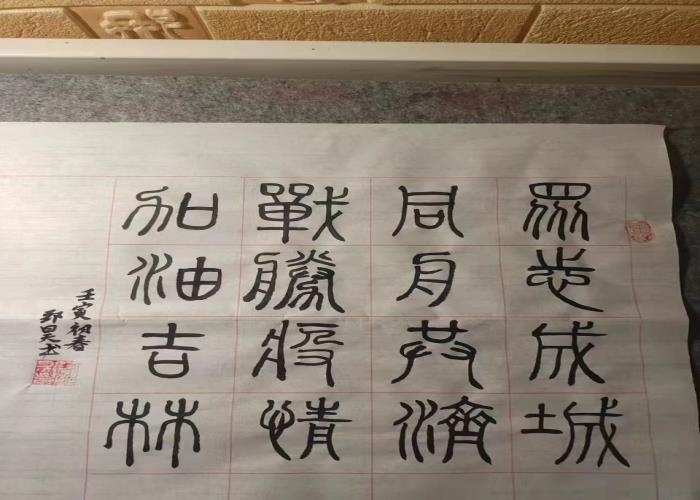 眾志成城
同舟共濟
戰勝疫情
加油吉林
壬寅初春